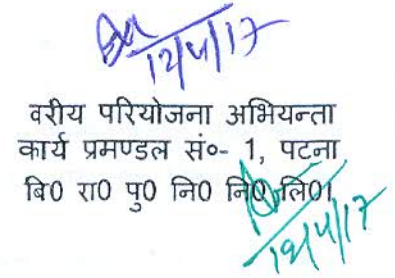 12/4/17
वरीय परियोजना अभियन्ता
कार्य प्रमण्डल सं०- 1, पटना
बि0 रा0 पु0 नि0 नि0 लि0।
12/4/17